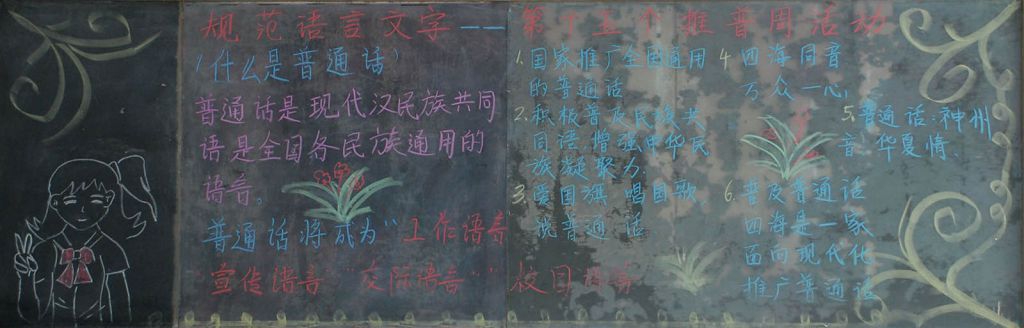 规范语言文字——第十五个推普周活动
(什么是普通话)
普通话是现代汉民族共同
语是全国各民族通用的
语音。
普通话将成为“工作语音
“宣传语音”“交际语音”“校园语言
1.国家推广全国通用
的普通话
2.积极普及民族共
同语,增强中华民
族凝聚力.
3.爱国旗 唱国歌
说普通话
4 四海同音
万众一心
5.普通话:神州
音 华夏情.
6.普及普通话
四海是一家
面向现代化
推广普通话